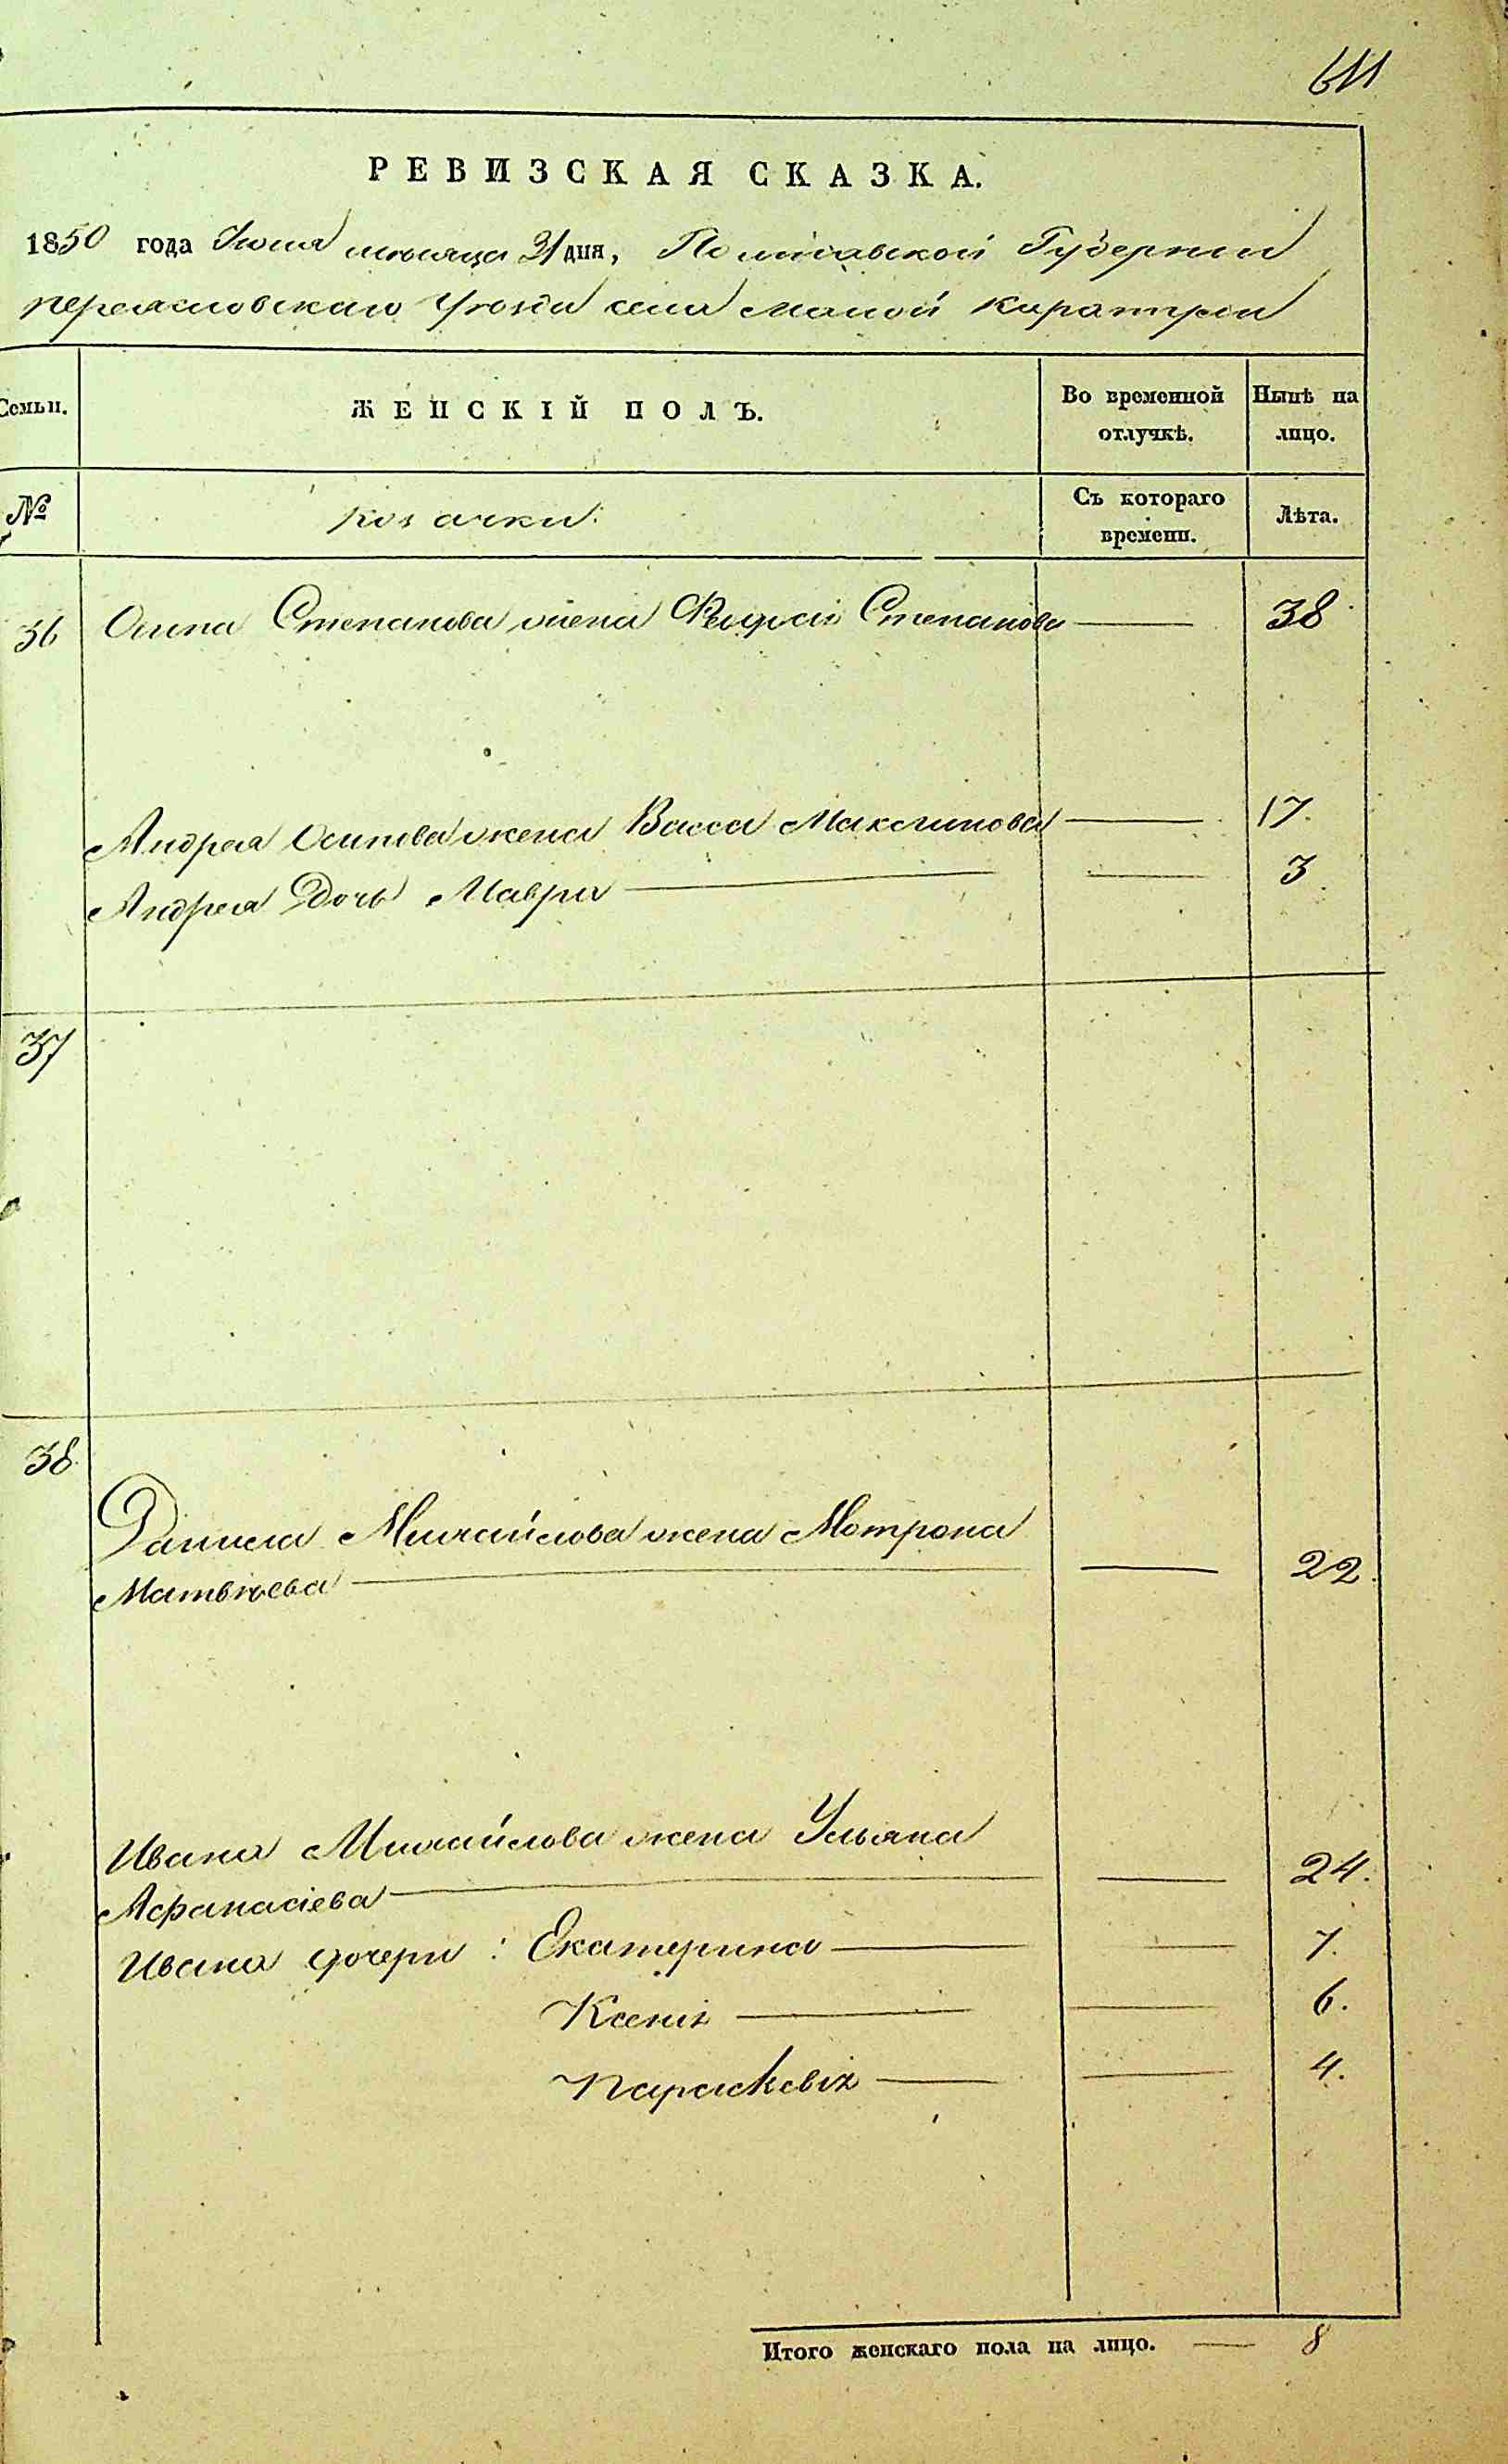 611
РЕВИЗСКАЯ СКАЗКА.
1850 года Іюля месяца 31 дня, Полтавской Губерніи
переясловскаго Уезда села малой каратули
Семьи. ЖЕНСКІЙ ПОЛЪ. Во временной отлучкѣ. Нынѣ на лицо.
№ козачки. Съ котораго времени. Лѣта.
36 Осипа Степанова жена Феодосія Степанова 38
Андрея Осипова жена Васса Максимова 17.
Андрея Дочь Мавра 3
37
38
Данила Михайлова жена Мотрона
Матвѣева 22.
Ивана Михайлова жена Ульяна
Афанасіева 24.
Ивана дочери : Екатерина 7.
Ксенія 6.
Параскевія 4.
Итого женскаго пола на лицо. 8